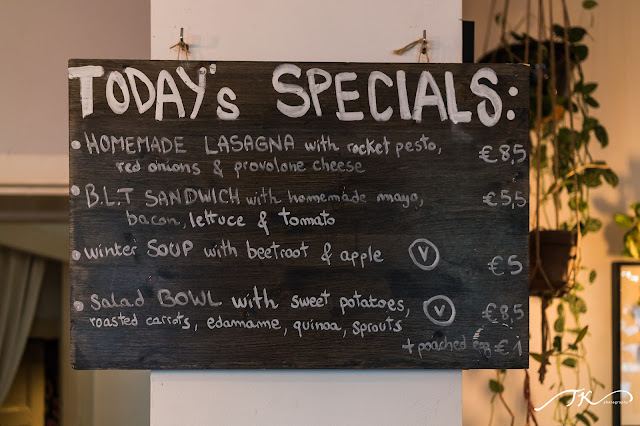 TODAY's SPECIALS:
• HOMEMADE LASAGNA with rocket pesto,
red onions & provolone cheese
€8,5
• B.L.T SANDWICH with homemade mayo,
bacon, lettuce & tomato
€5,5
• winter SOUP with beetroot & apple V
€5
• Salad BOWL with sweet potatoes, V
roasted carrots, edamame, quinoa, sprouts
€8,5
+ poached egg €1
JK photography